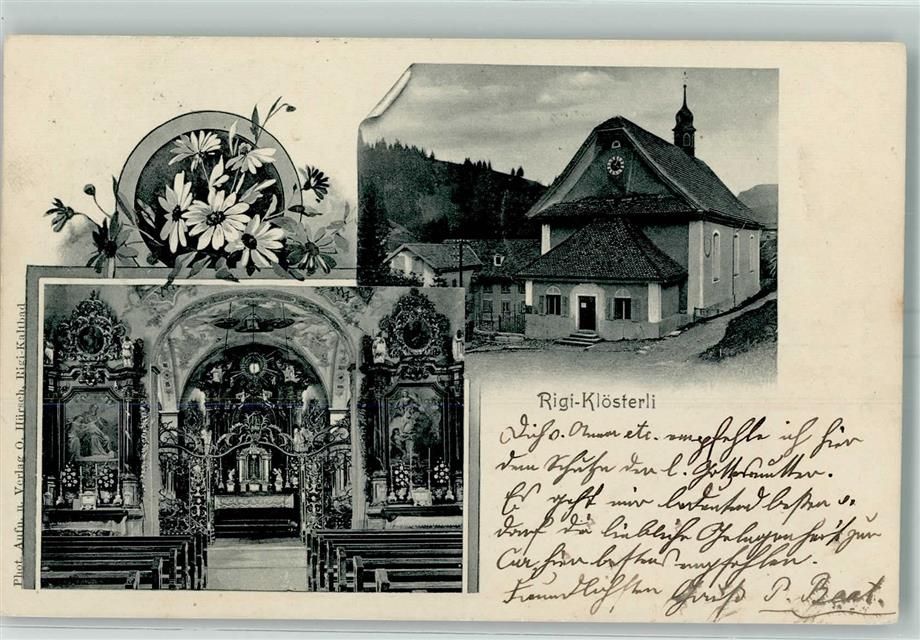 Rigi-Klösterli
Dich u. Anna etc. empfehle ich hier
dem Schutze der l. Gottesmutter.
Es geht mir bedeutend besser u.
darf die liebliche Gelegenheit zur
Cur hier bestens empfehlen.
Freundlichsten Gruß P. Beat.
Phot. Aufn. u. Verlag O. Hürsch, Rigi-Kaltbad